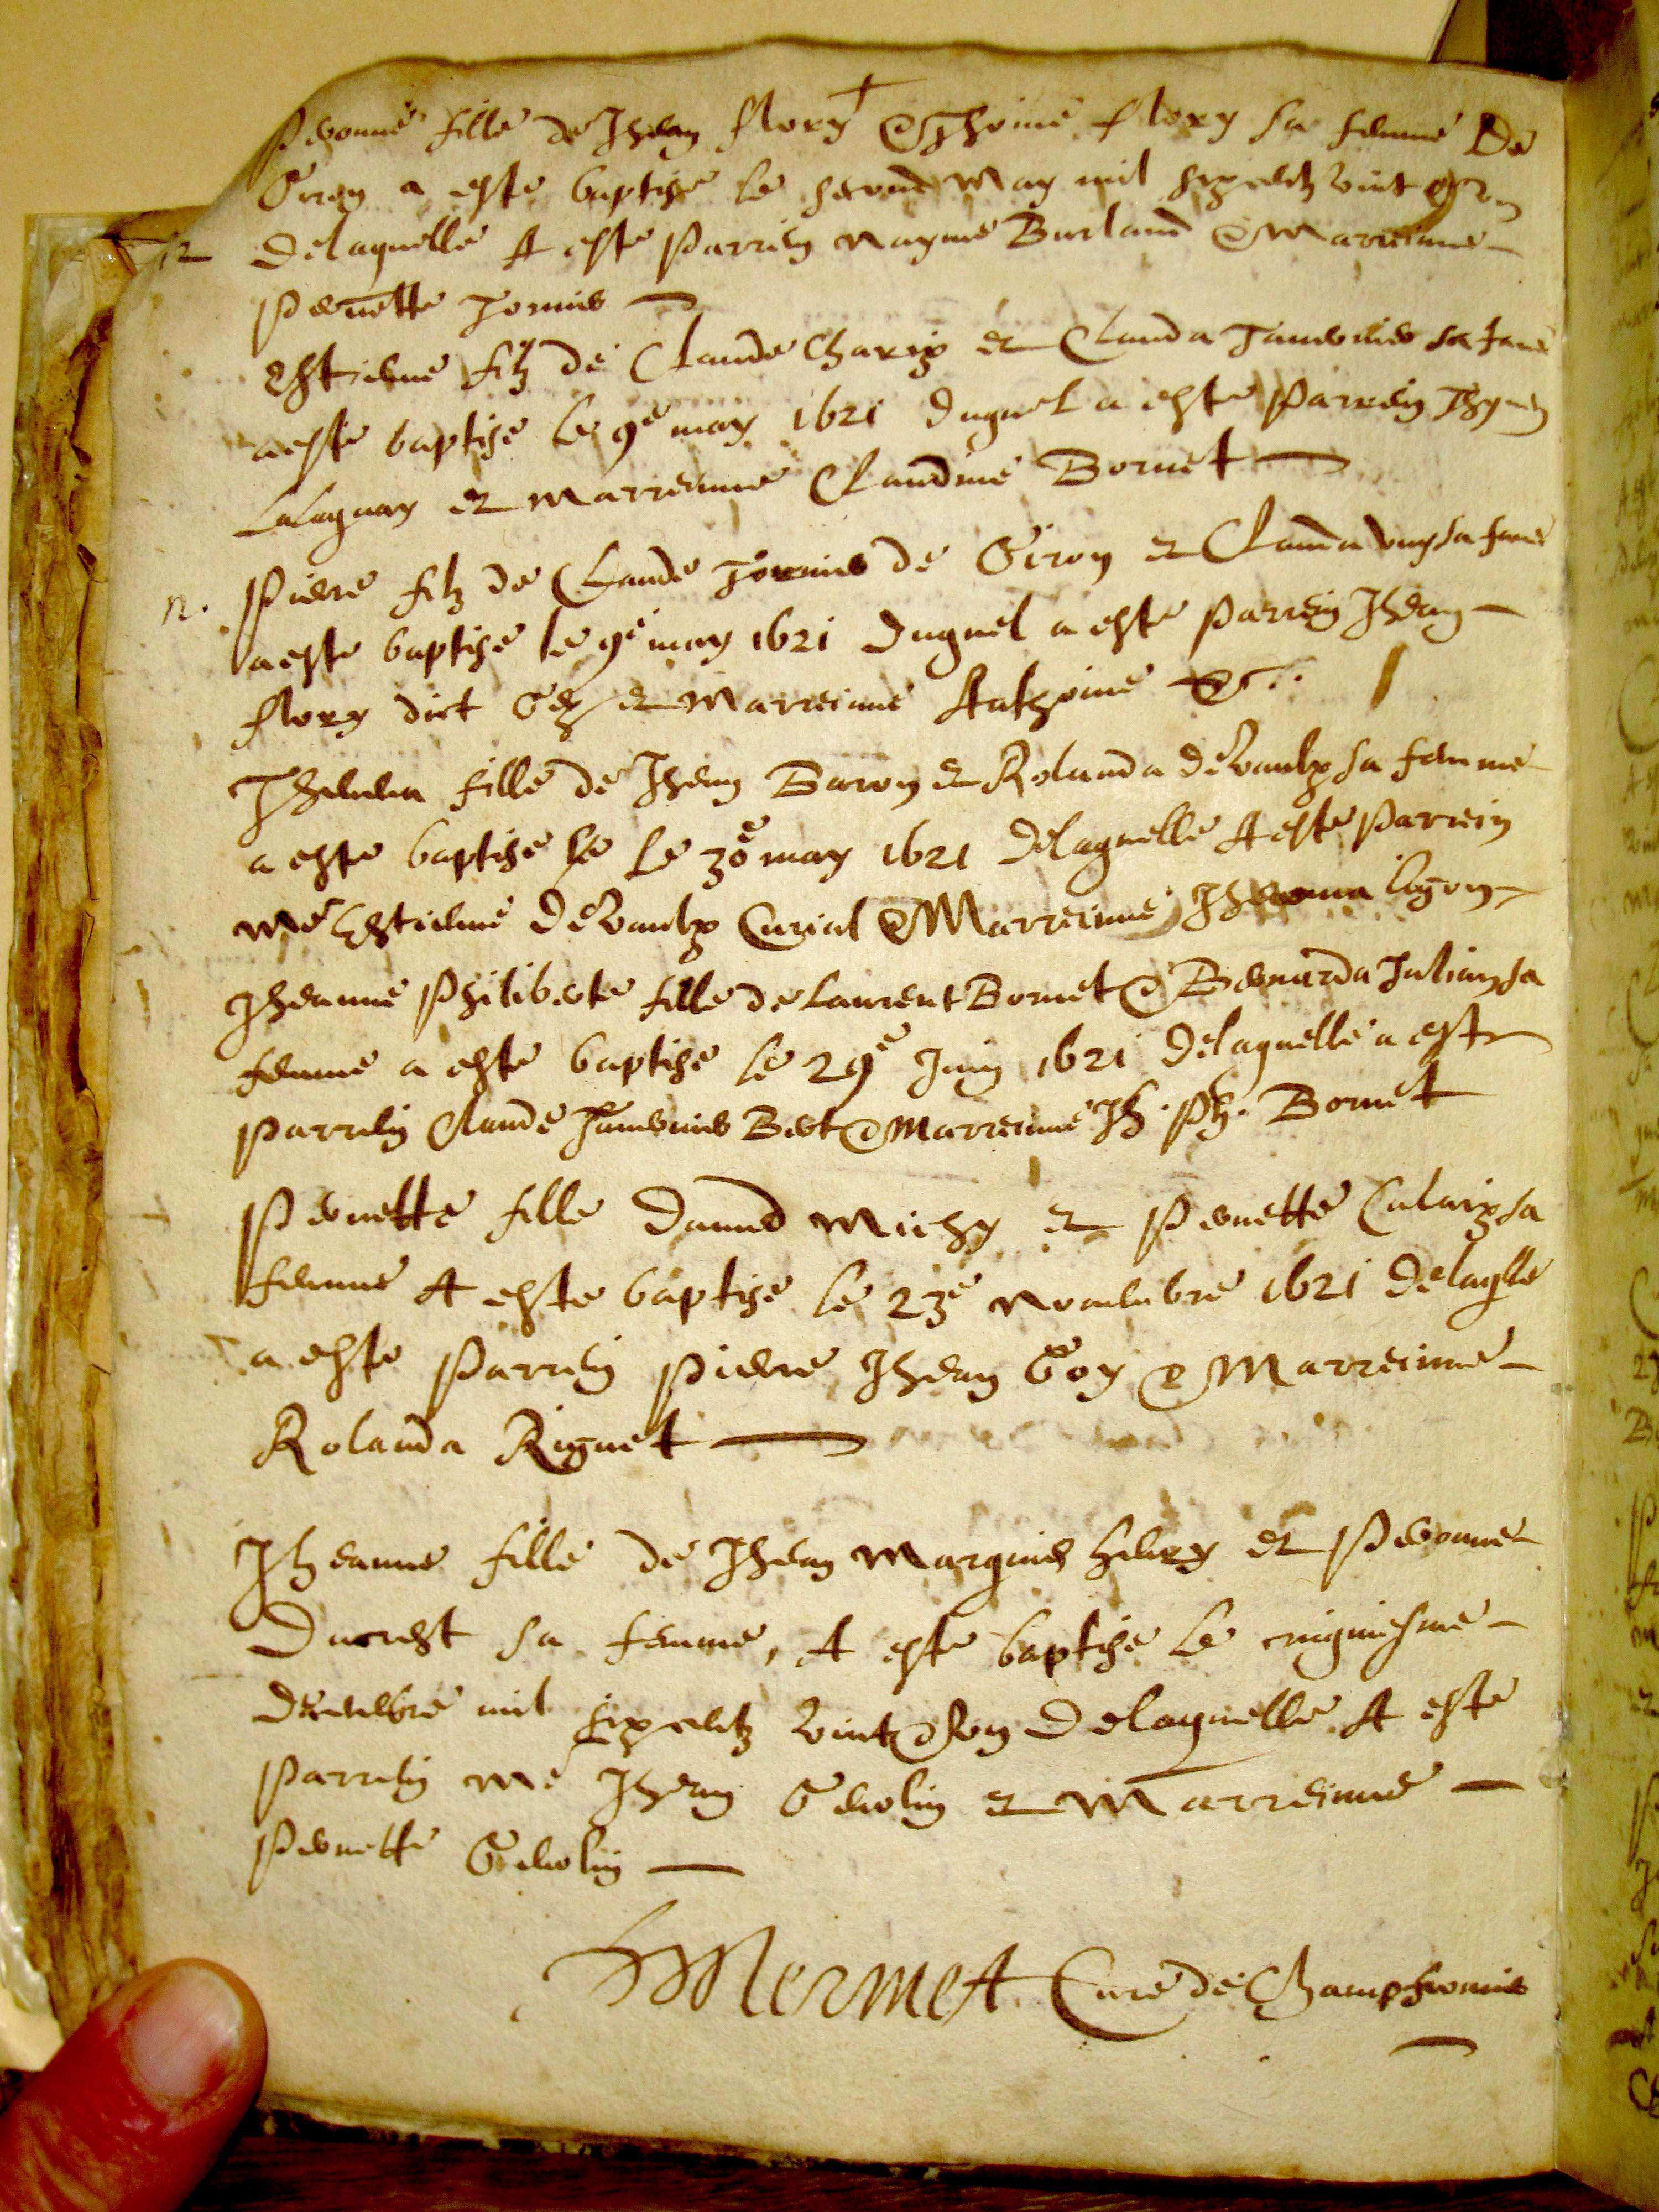 Pevonne fille de Jhean Flory & Thoine Flory sa femme De
Giron a este baptise le second May mil sixcentz vint &
delaquelle A este Parrein Nayme Burland & Marreinne
Pernette Tornier
Estienne filz de Claude Charix et Clauda Tauernier sa fame
a este baptise le 9e may 1621 duquel a este Parrein
et Marreinne Claudine Bornet
n. Pierre filz de Claude Tornier de Giron et Clauda sa fame
a este baptise le 9e may 1621 duquel a este parrein Jhean
Flory dict et Marreinne Anthoine &c.
fille de Jhean Baron et Rolanda deVaulx sa femme
a este baptise le le 30e may 1621 delaquelle A este Parrein
Me Estienne deVaulx Curial & Marreinne
Jheanne Philiberte fille de Laurent Bornet & Bernarda Julian sa
femme a este baptise le 29e Juin 1621 delaquelle a este
parrein Claude Tauernier Bert & Marreinne Jh. Ph. Bornet
Pernette fille David Michy et Pernette sa
femme A este baptise le 23e Novembre 1621 delaqlle
a este Parrein Pierre Jhean Goy & Marreinne
Rolanda Riguet
Jheanne fille de Jhean Marquis Henry et Pevonne
Ducrest sa femme, A este baptise le cinquiesme
Decembre mil sixcentz vint & un Delaquelle A este
Parrein Me Jhean Genolin et Marreinne
Pernette Genolin
Mermet Curé de Champfromier